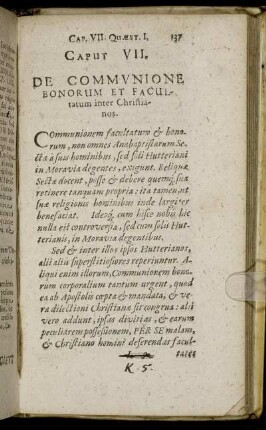 CAP. VII. QUÆST. I. 137
CAPUT VII.
DE COMMVNIONE
BONORUM ET FACUL-
tatum inter Christia-
nos.
Communionem facultatum & bono-
rum, non omnes Anabaptistarum Se-
ctæ à suis hominibus, sed soli Hutteriani
in Moravia degentes, exigunt. Reliquæ
Sectæ docent, posse & debere quemq; sua
retinere tanquam propria: ita tamen, ut
suæ religionis hominibus inde largiter
benefaciat. Ideoq; cum hisce nobis hic
nulla est controversia, sed cum solis Hut-
terianis, in Moravia degentibus.
Sed & inter illos ipsos Hutterianos,
alii aliis superstitiosiores reperiuntur. A-
liqui enim illorum, Communionem bono-
rum corporalium tantum urgent, quod
ea ab Apostolis cœpta & mandata, & ve-
ra dilectioni Christianæ sit congrua: alii
vero addunt, ipsas divitias, & earum
peculiarem possessionem, PER SE malam,
& Christiano homini deserendas facul-
K 5 tates